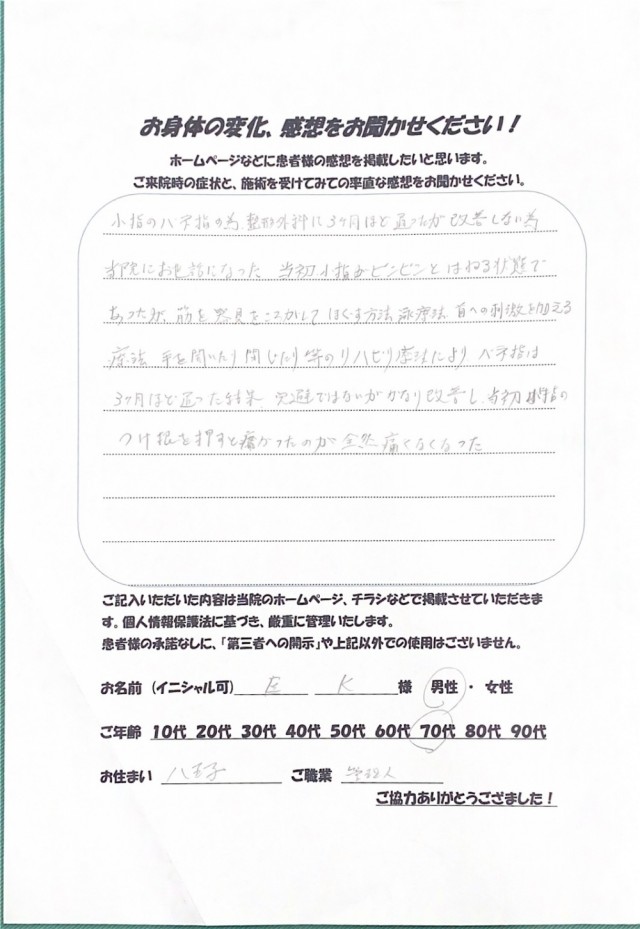 お身体の変化、感想をお聞かせください！
ホームページなどに患者様の感想を掲載したいと思います。
ご来院時の症状と、施術を受けてみての率直な感想をお聞かせください。
小指のバネ指の為、整形外科に3ヶ月ほど通ったが改善しない為
当院にお世話になった。当初小指がビンビンとはねる状態で
あったが、筋を器具をころがしてほぐす方法 鍼療法 首への刺激を加える
療法 手を開いたり閉じたり等のリハビリ療法により バネ指は
3ヶ月ほど通った結果 完避ではないがかなり改善し、当初 小指の
つけ根を押すと痛かったのが全然痛くなくなった
ご記入いただいた内容は当院のホームページ、チラシなどで掲載させていただきま
す。個人情報保護法に基づき、厳重に管理いたします。
患者様の承諾なしに、「第三者への開示」や上記以外での使用はございません。
お名前（イニシャル可） E K 様 男性・女性
ご年齢 10代 20代 30代 40代 50代 60代 70代 80代 90代
お住まい 八王子 ご職業 管理人
ご協力ありがとうござました！